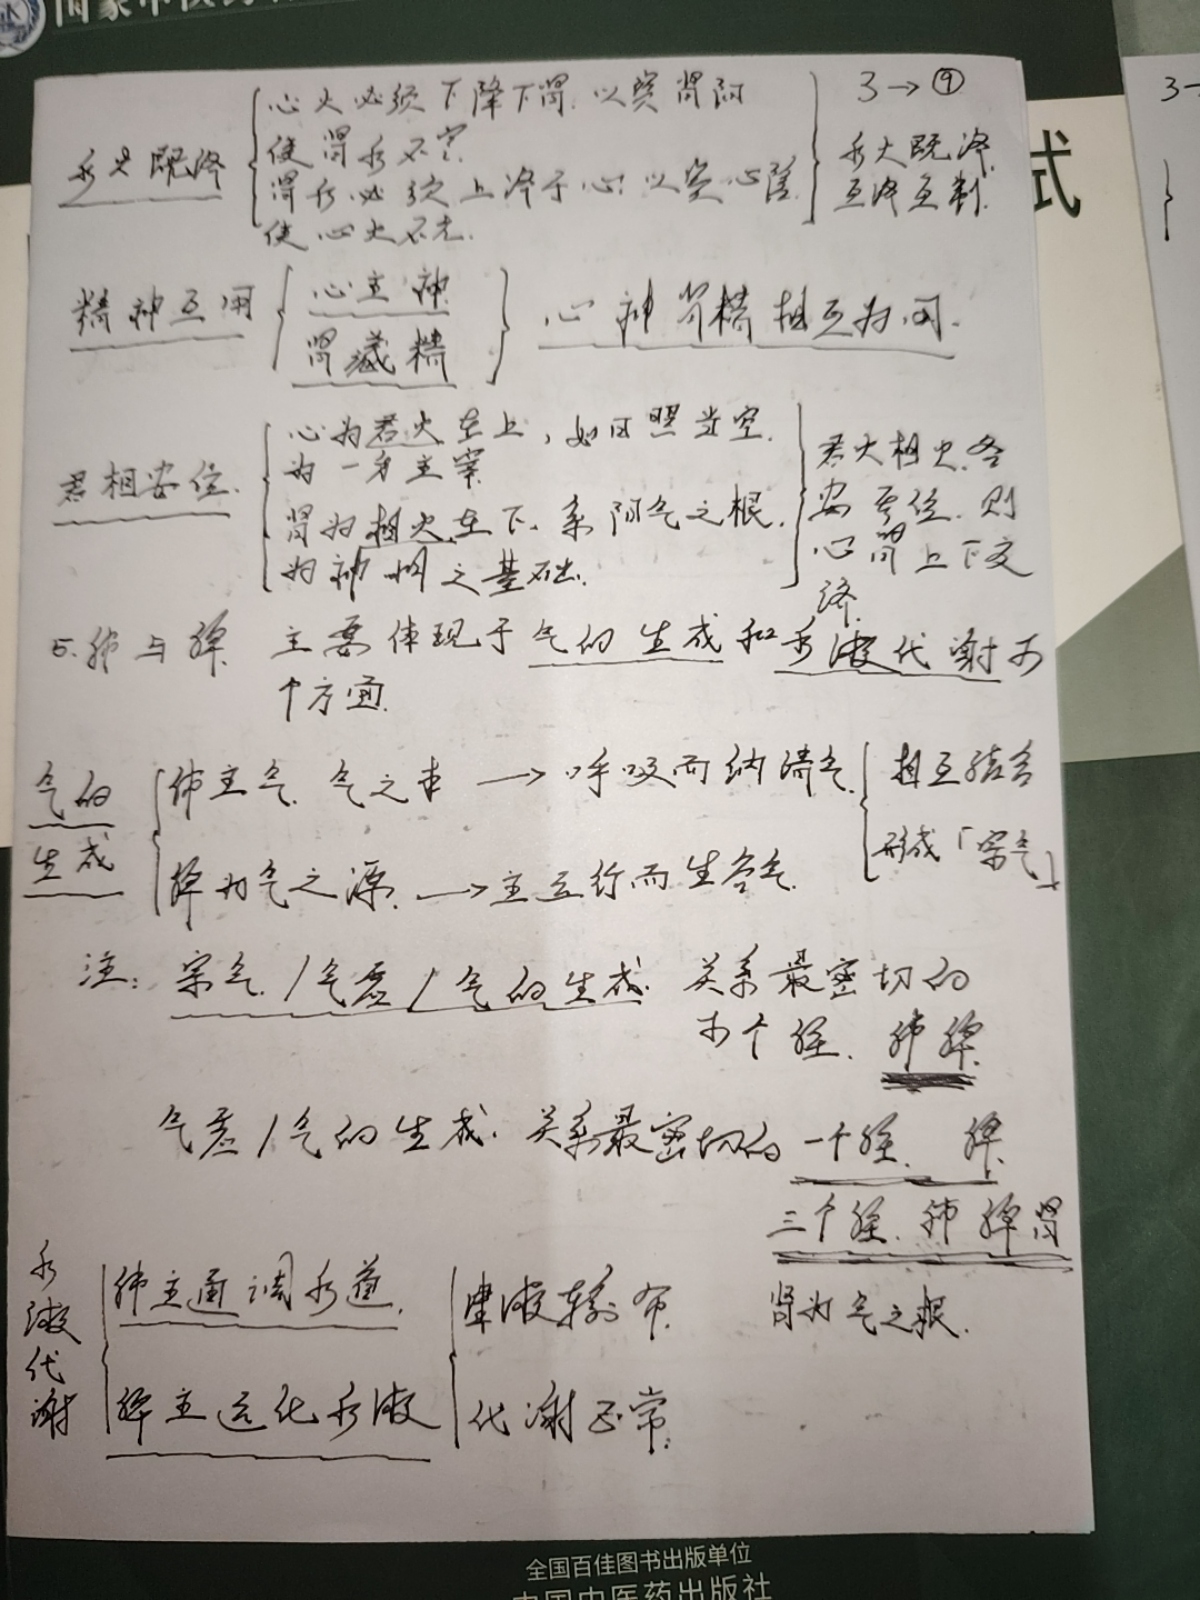 3→⑨
水火既济
心火必须下降下肾,以资肾阳
使肾水不寒.
肾水必须上济于心,以资心阴
使心火不亢.
水火既济
互济互制.
精神互用
心主神
肾藏精
心神肾精相互为用.
君相安位.
心为君火在上,如日照当空.
为一身主宰
肾为相火在下.系阳气之根.
为神明之基础.
君火相火.各
安其位.则
心肾上下交
济.
5.肺与脾. 主要体现于气的生成和水液代谢两
个方面.
气的
生成
肺主气.气之本 → 呼吸而纳清气.
脾为气之源. → 主运行而生谷气.
相互结合
形成「宗气」
注: 宗气/气虚/气的生成. 关系最密切的
两个脏. 肺脾.
气虚/气的生成.关系最密切的一个脏. 脾.
三个脏.肺脾肾
肾为气之根.
水
液
代
谢
肺主通调水道.
脾主运化水液
津液输布.
代谢正常.
3→
式
全国百佳图书出版单位
中国中医药出版社